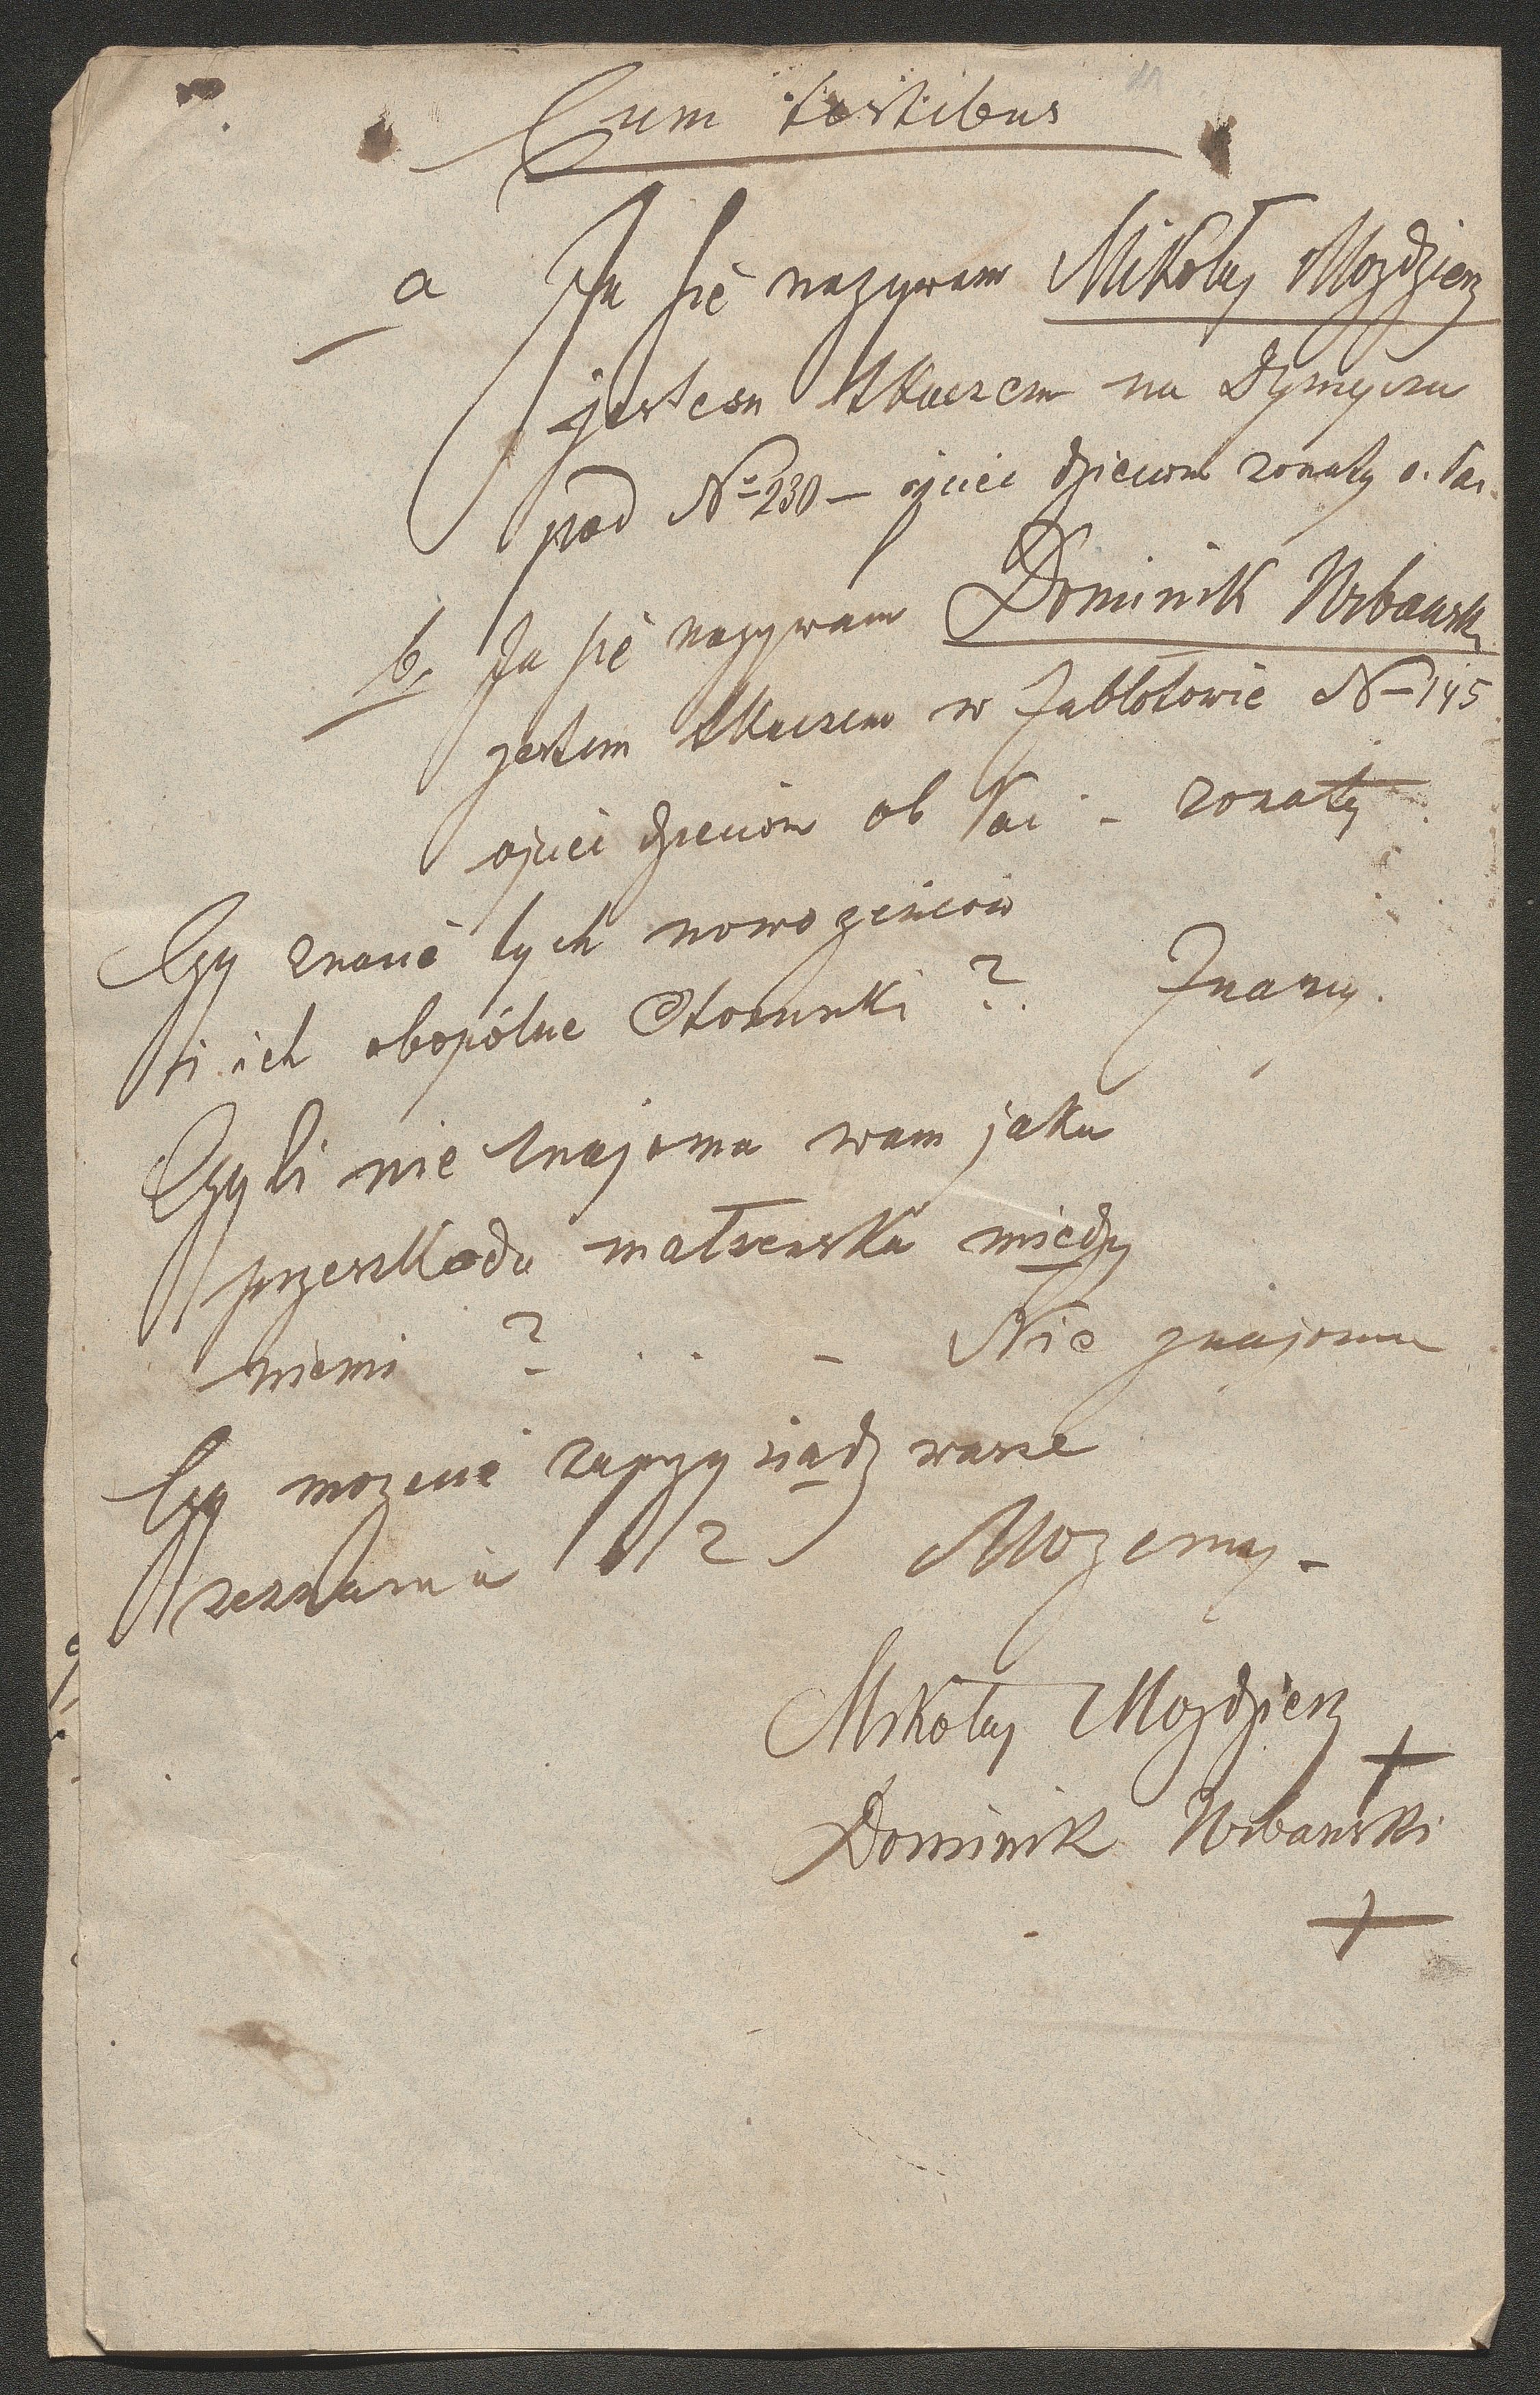 Cum testibus
a Ja się nazywam Mikołaj Mozdzierz
jestem tkaczem na Dymyczu
pod No 230 – ojciec dzieciom zonaty o. łac.
b, Ja się nazywam Dominik Urbański
jestem tkaczem w Zabłotowie N– 145
ojciec dzieciom ob łac – zonaty
Czy znacie tych nowozencow
i ich obopólne Stosunki ? Znamy.
Czyli nie znajoma wam jaka
przeszkoda małzenska między
niemi ? . . – Nie znajoma
Czy mozecie zaprzysiądz wasze
zeznania ? Mozemy –
Mikołaj Mozdzierz
+
Dominik Urbański
+